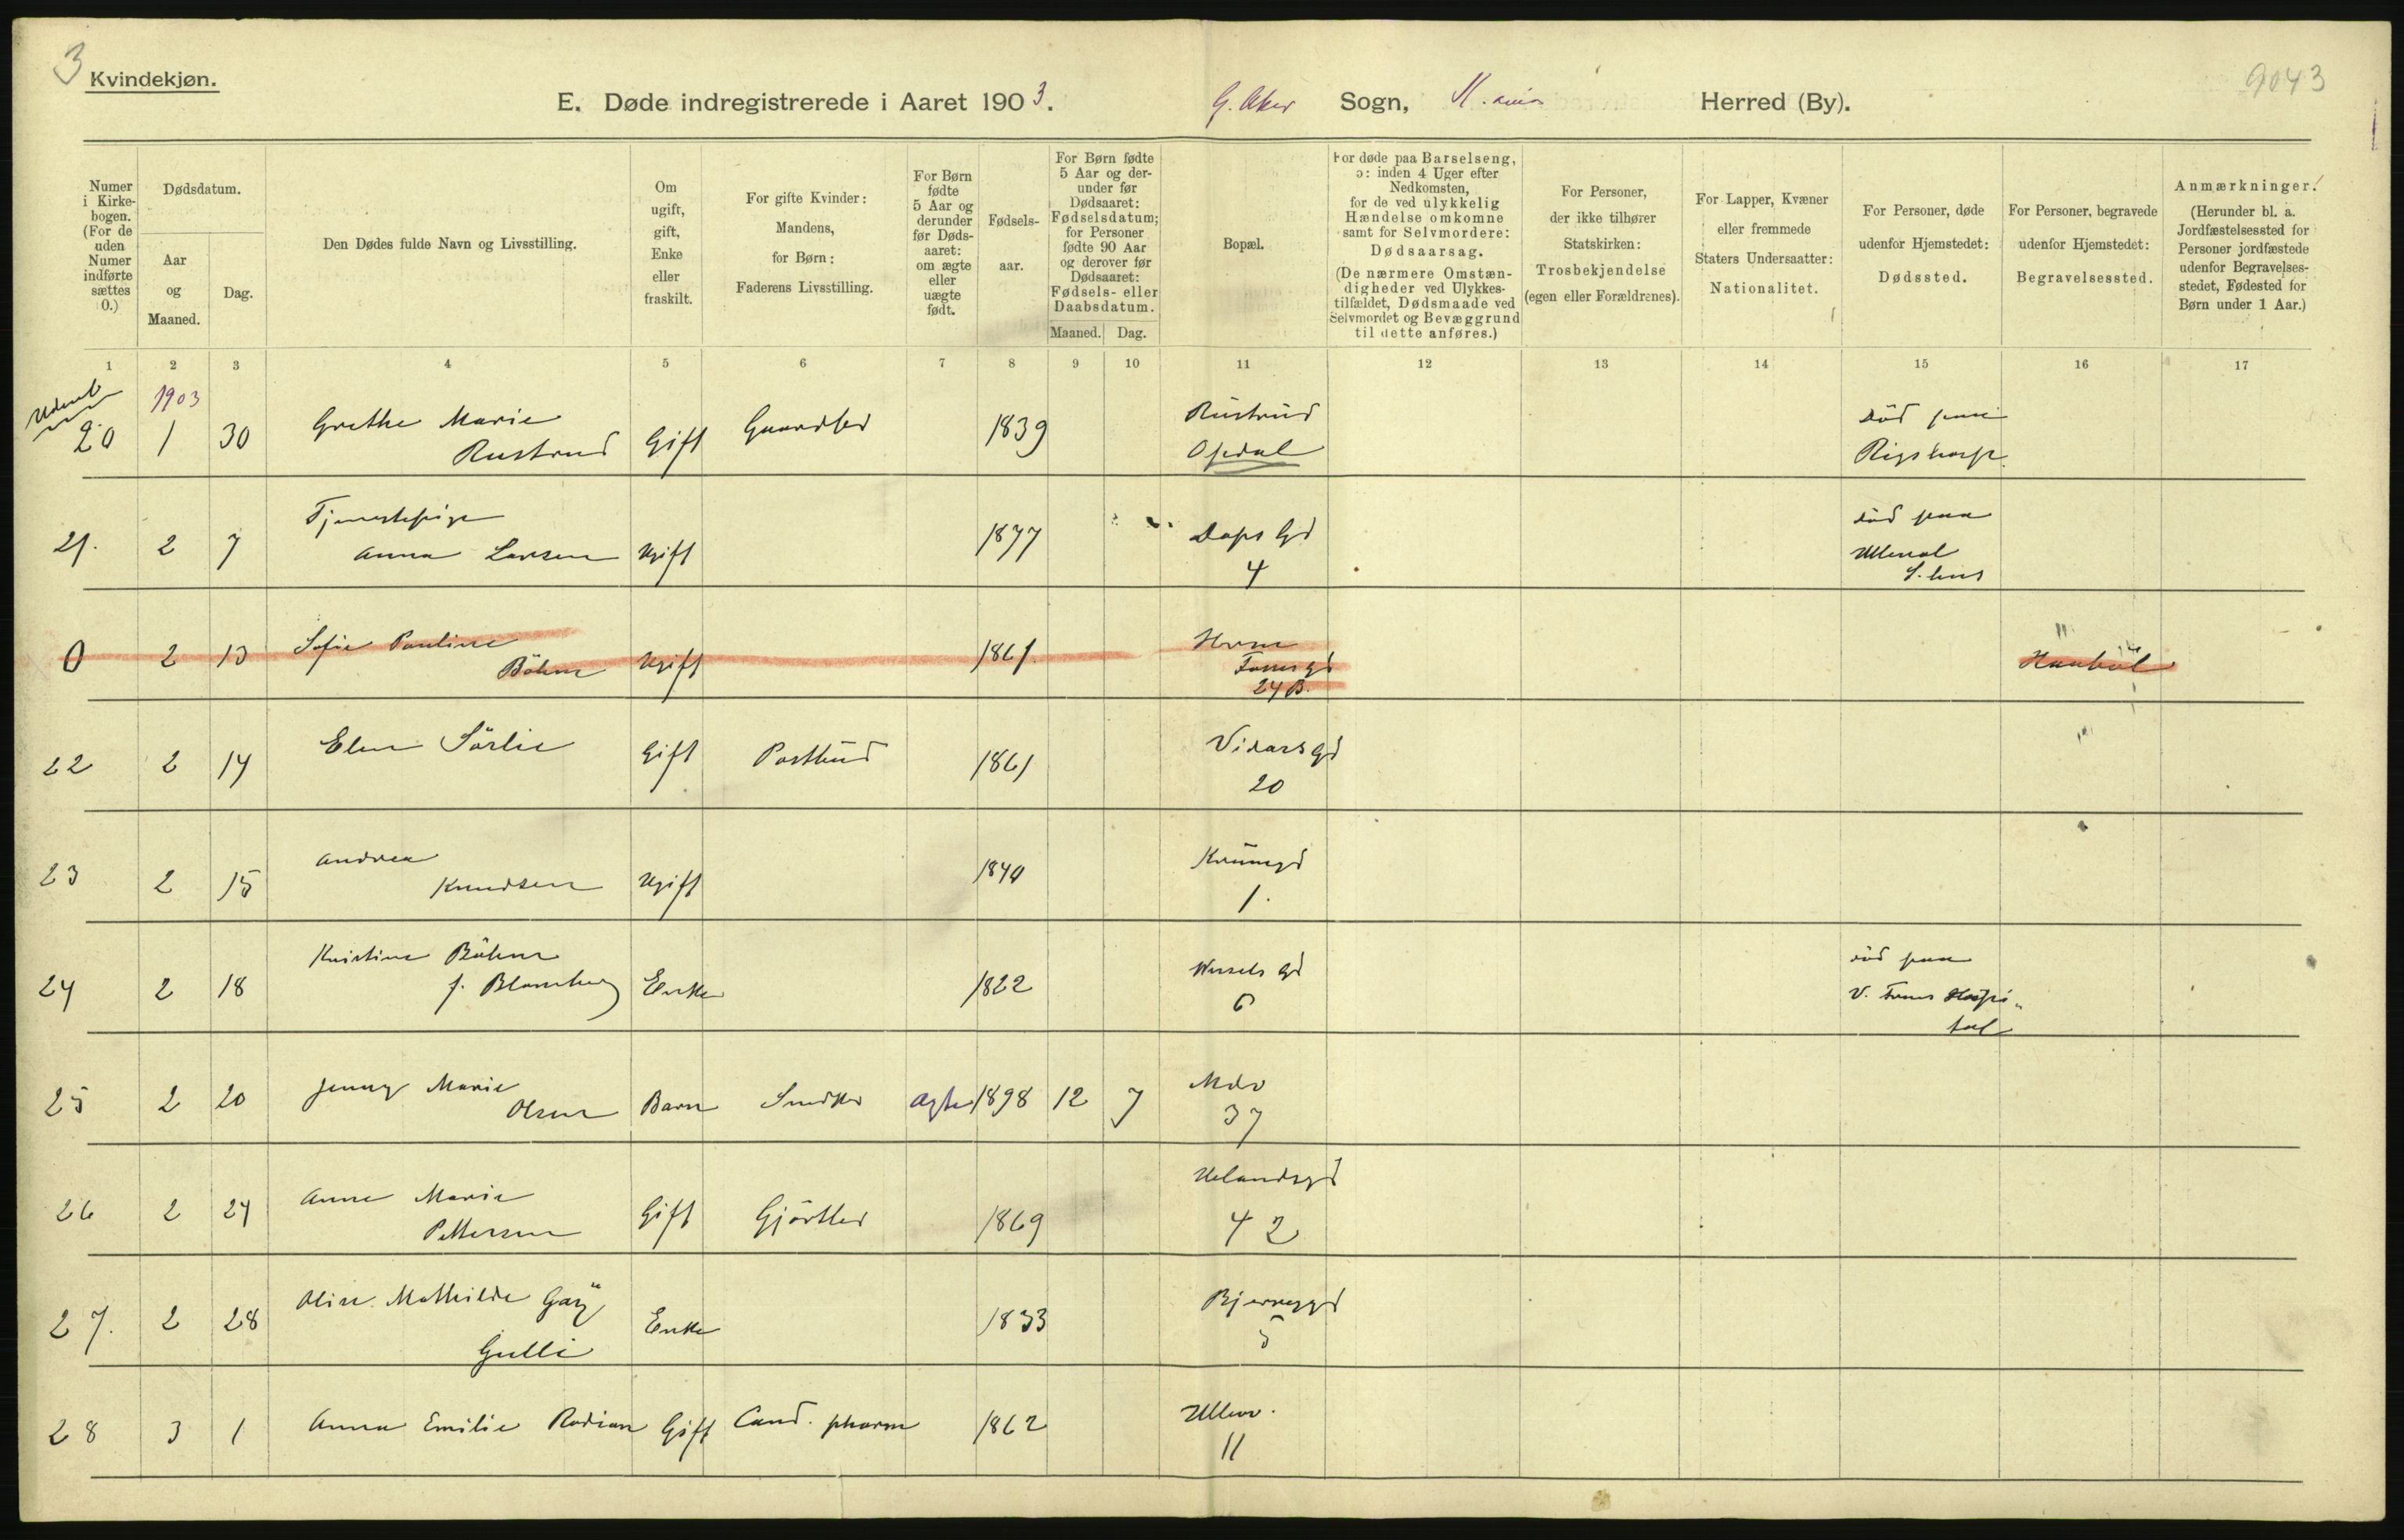 3
Kvindekjøn.
9043
E. Døde indregistrerede i Aaret 1903. G. Aker Sogn, Herred (By).
Numer i Kirke-bogen. (For de uden Numer indførte sættes 0.)
Dødsdatum.
Aar og Maaned.
Dag.
Den Dødes fulde Navn og Livsstilling.
Om ugift, gift, Enke eller fraskilt.
For gifte Kvinder: Mandens, for Børn: Faderens Livsstilling.
For Børn fødte 5 Aar og derunder før Døds-aaret: om ægte eller uægte født.
Fødsels-aar.
For Børn fødte 5 Aar og der-under før Dødsaaret: Fødselsdatum; for Personer fødte 90 Aar og derover før Dødsaaret: Fødsels- eller Daabsdatum.
Maaned. Dag.
Bopæl.
For døde paa Barselseng, ɔ: inden 4 Uger efter Nedkomsten, for de ved ulykkelig Hændelse omkomne samt for Selvmordere: Dødsaarsag. (De nærmere Omstæn-digheder ved Ulykkes-tilfældet, Dødsmaade ved Selvmordet og Bevæggrund til dette anføres.)
For Personer, der ikke tilhører Statskirken: Trosbekjendelse (egen eller Forældrenes).
For Lapper, Kvæner eller fremmede Staters Undersaatter: Nationalitet.
For Personer, døde udenfor Hjemstedet: Dødssted.
For Personer, begravede udenfor Hjemstedet: Begravelsessted.
Anmærkninger. (Herunder bl. a. Jordfæstelsessted for Personer jordfæstede udenfor Begravelses-stedet, Fødested for Børn under 1 Aar.)
1 2 3 4 5 6 7 8 9 10 11 12 13 14 15 16 17
1903
Grethe Marie Rustrud død paa
20 1 30 Rustrud Gift 1839 Opdal Rigshosp.
Tjenestepige Daps Gd død paa
21. 2 7 Anna Larsen Ugift 1877 4 Ulleval
S. hus
0 2 13 Sofie Pauline
Böhm Ugift 1861. Fossgd
24 B.
22 2 14 Elen Sörlie Gift Postbud 1861 Vidarsgd
20
23 2 15 Andrea
Knudsen Ugift 1840
1.
Kristine Böhm Wessels Gd død paa
24 2 18 f. Enke 1822 6 V. Hospi-
tal
25 2 20 Jenny Marie
Olsen Barn Snedker ægte 1898 12 7
37
26 2 24 Anne Marie Uelandsgd
Pettersen Gift Gjörtler 1869 42
27. 2 28 Oline Mathilde
Gulli Enke 1833
5
28 3 1 Anna Emilie Rodian Gift Cand. pharm 1862 Ullev.
11